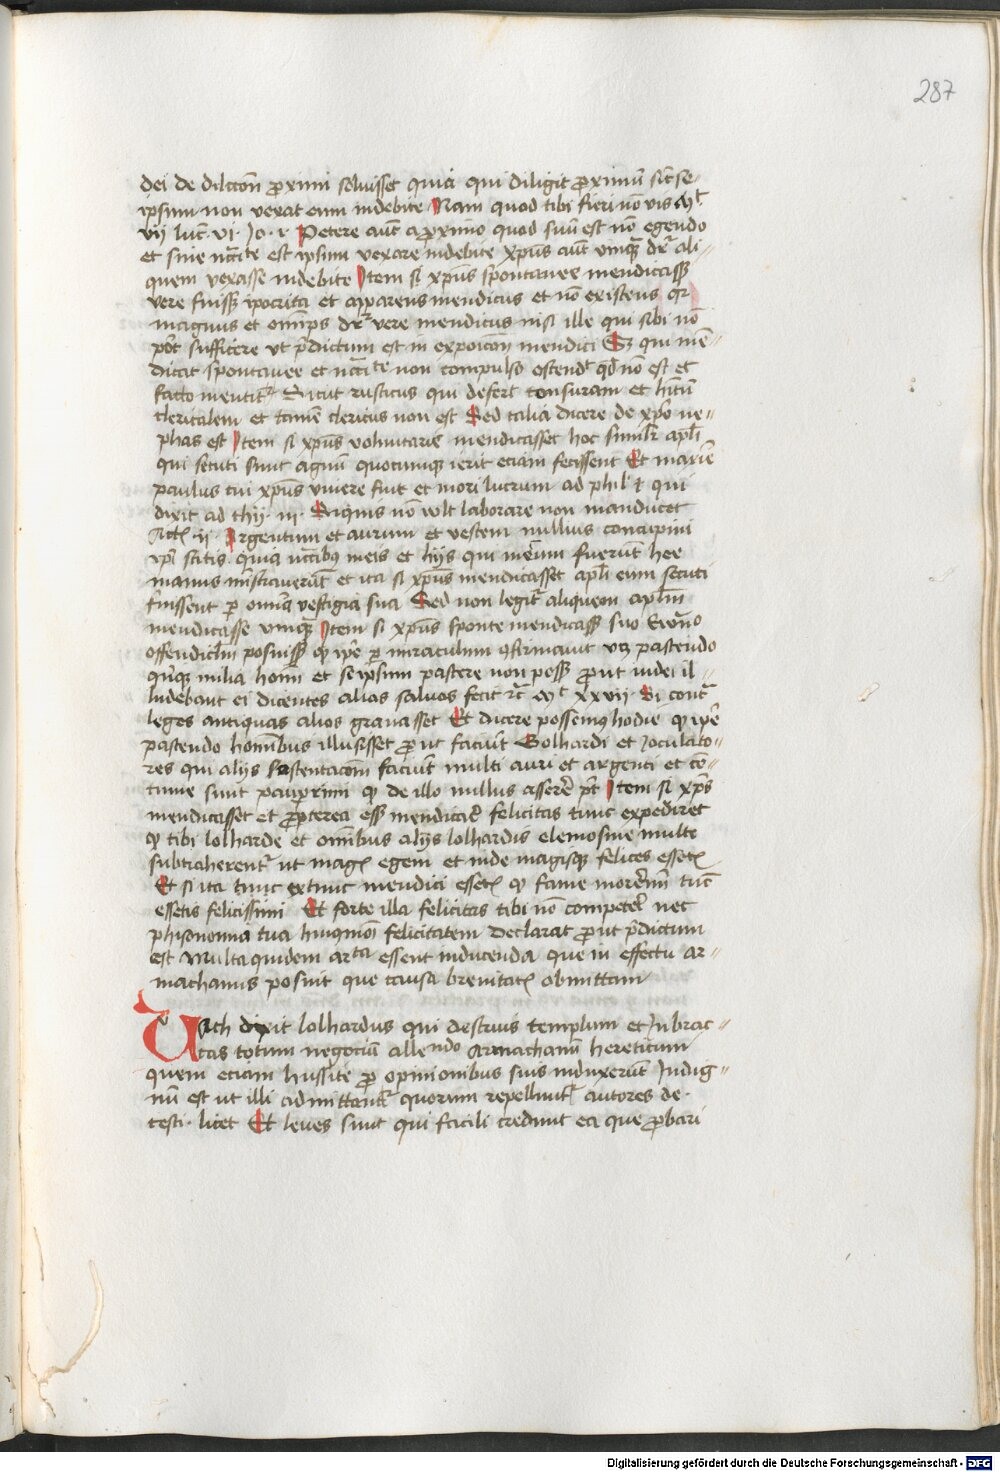 287
dei de dilccōn proximi soluisset quia qui diligit proximū sicut se
ipsum non vexat eum indebite Nam quod tibi fieri nō vis Mt
vii luc̄ vi Io r Petere aūt a proximo quod suū est nō egendo
et sine nc̄cite est ipsum vexare indebite xp̄us aūt vmqȝ dr̄ ali=
quem vexasse indebite Item si xp̄us spontanee mendicassȝ
vere fuissȝ ipocrita et apparens mendicus et nō existens qr
magnus et om̄ps dr̄ vere mendicus nisi ille qui sibi nō
pōt sufficere vt p̄dictum est in expoicōn mendici Sȝ qui mē=
dicat spontanee et nc̄cite non compulso ostendt qd nō est et
facto mentitr Sicut rusticus qui defert tonsuram et hītū
clericalem et tamē clericus non est Sed talia dicere de xp̄o ne=
phas est Item si xp̄us voluntarie mendicasset hoc simlr apl̄i
qui secuti sunt agnū quocumqȝ ierit eciam fecissent Et maxīe
paulus cui xp̄us viuere fuit et mori lucrum ad phil r qui
dixit ad thy iii Siquis nō volt laborare non manducet
Act ii Argentum et aurum et vestem nullius concupiui
vp̄i scitis quia nc̄cibus meis et hijs qui mecum fuerūt hee
manus mīstrauerūt et ita si xp̄us mendicasset apl̄i eum secuti
fuissent per omīa vestigia sua Sed non legitr aliquem apl̄m
mendicasse vmqȝ Item si xp̄us sponte mendicassȝ suo Ewanō
offendiclm posuissȝ qȝ ip̄e per miraculum 9firmauit vȝ pascendo
qīqȝ milia homī et seipsum pascere non possȝ prout iudei il=
ludebant ei dicentes alios saluos fecit rc̄ Mt xxvii Et contra
leges antiquas alios grauasset Et dicere possemus hodie qȝ ip̄e
pascendo hominibus illusisset prout faciūt Golhardi et Joculato=
res qui alijs sustentacōm faciūt multi auri et argenti et cō=
tinue sunt pauperrimi qȝ de illo nullus asserē pt̄ Item si xp̄us
mendicasset et propterea essȝ mendicacō felicitas tunc expediret
qȝ tibi lolharde et omībus alijs lolhardis elemosine multe
subtraherentr vt magis egeni et inde magisqȝ felices essetis
Et si ita tunc extunc mendici essetis qȝ fame moremī tūc
essetis felicissimi Et forte illa felicitas tibi nō competet nec
phisonomia tua huiusmōi felicitatem declarat prout p̄dictum
est Multa quidem arta essent inducenda que in effectu ar=
machanus posuit que causa breuitatis obmittam
Vach dixit lolhardus qui destruis templum et In brac=
cas totum negociū allendo Armachanū hereticum
quem eciam hussite pro opinionibus suis induxerūt Indig=
nū est vt illi admittantr quorum repelluntr autores de
testi licet Et leues sunt qui facili credunt ea que probari
Digitalisierung gefördert durch die Deutsche Forschungsgemeinschaft - DFG